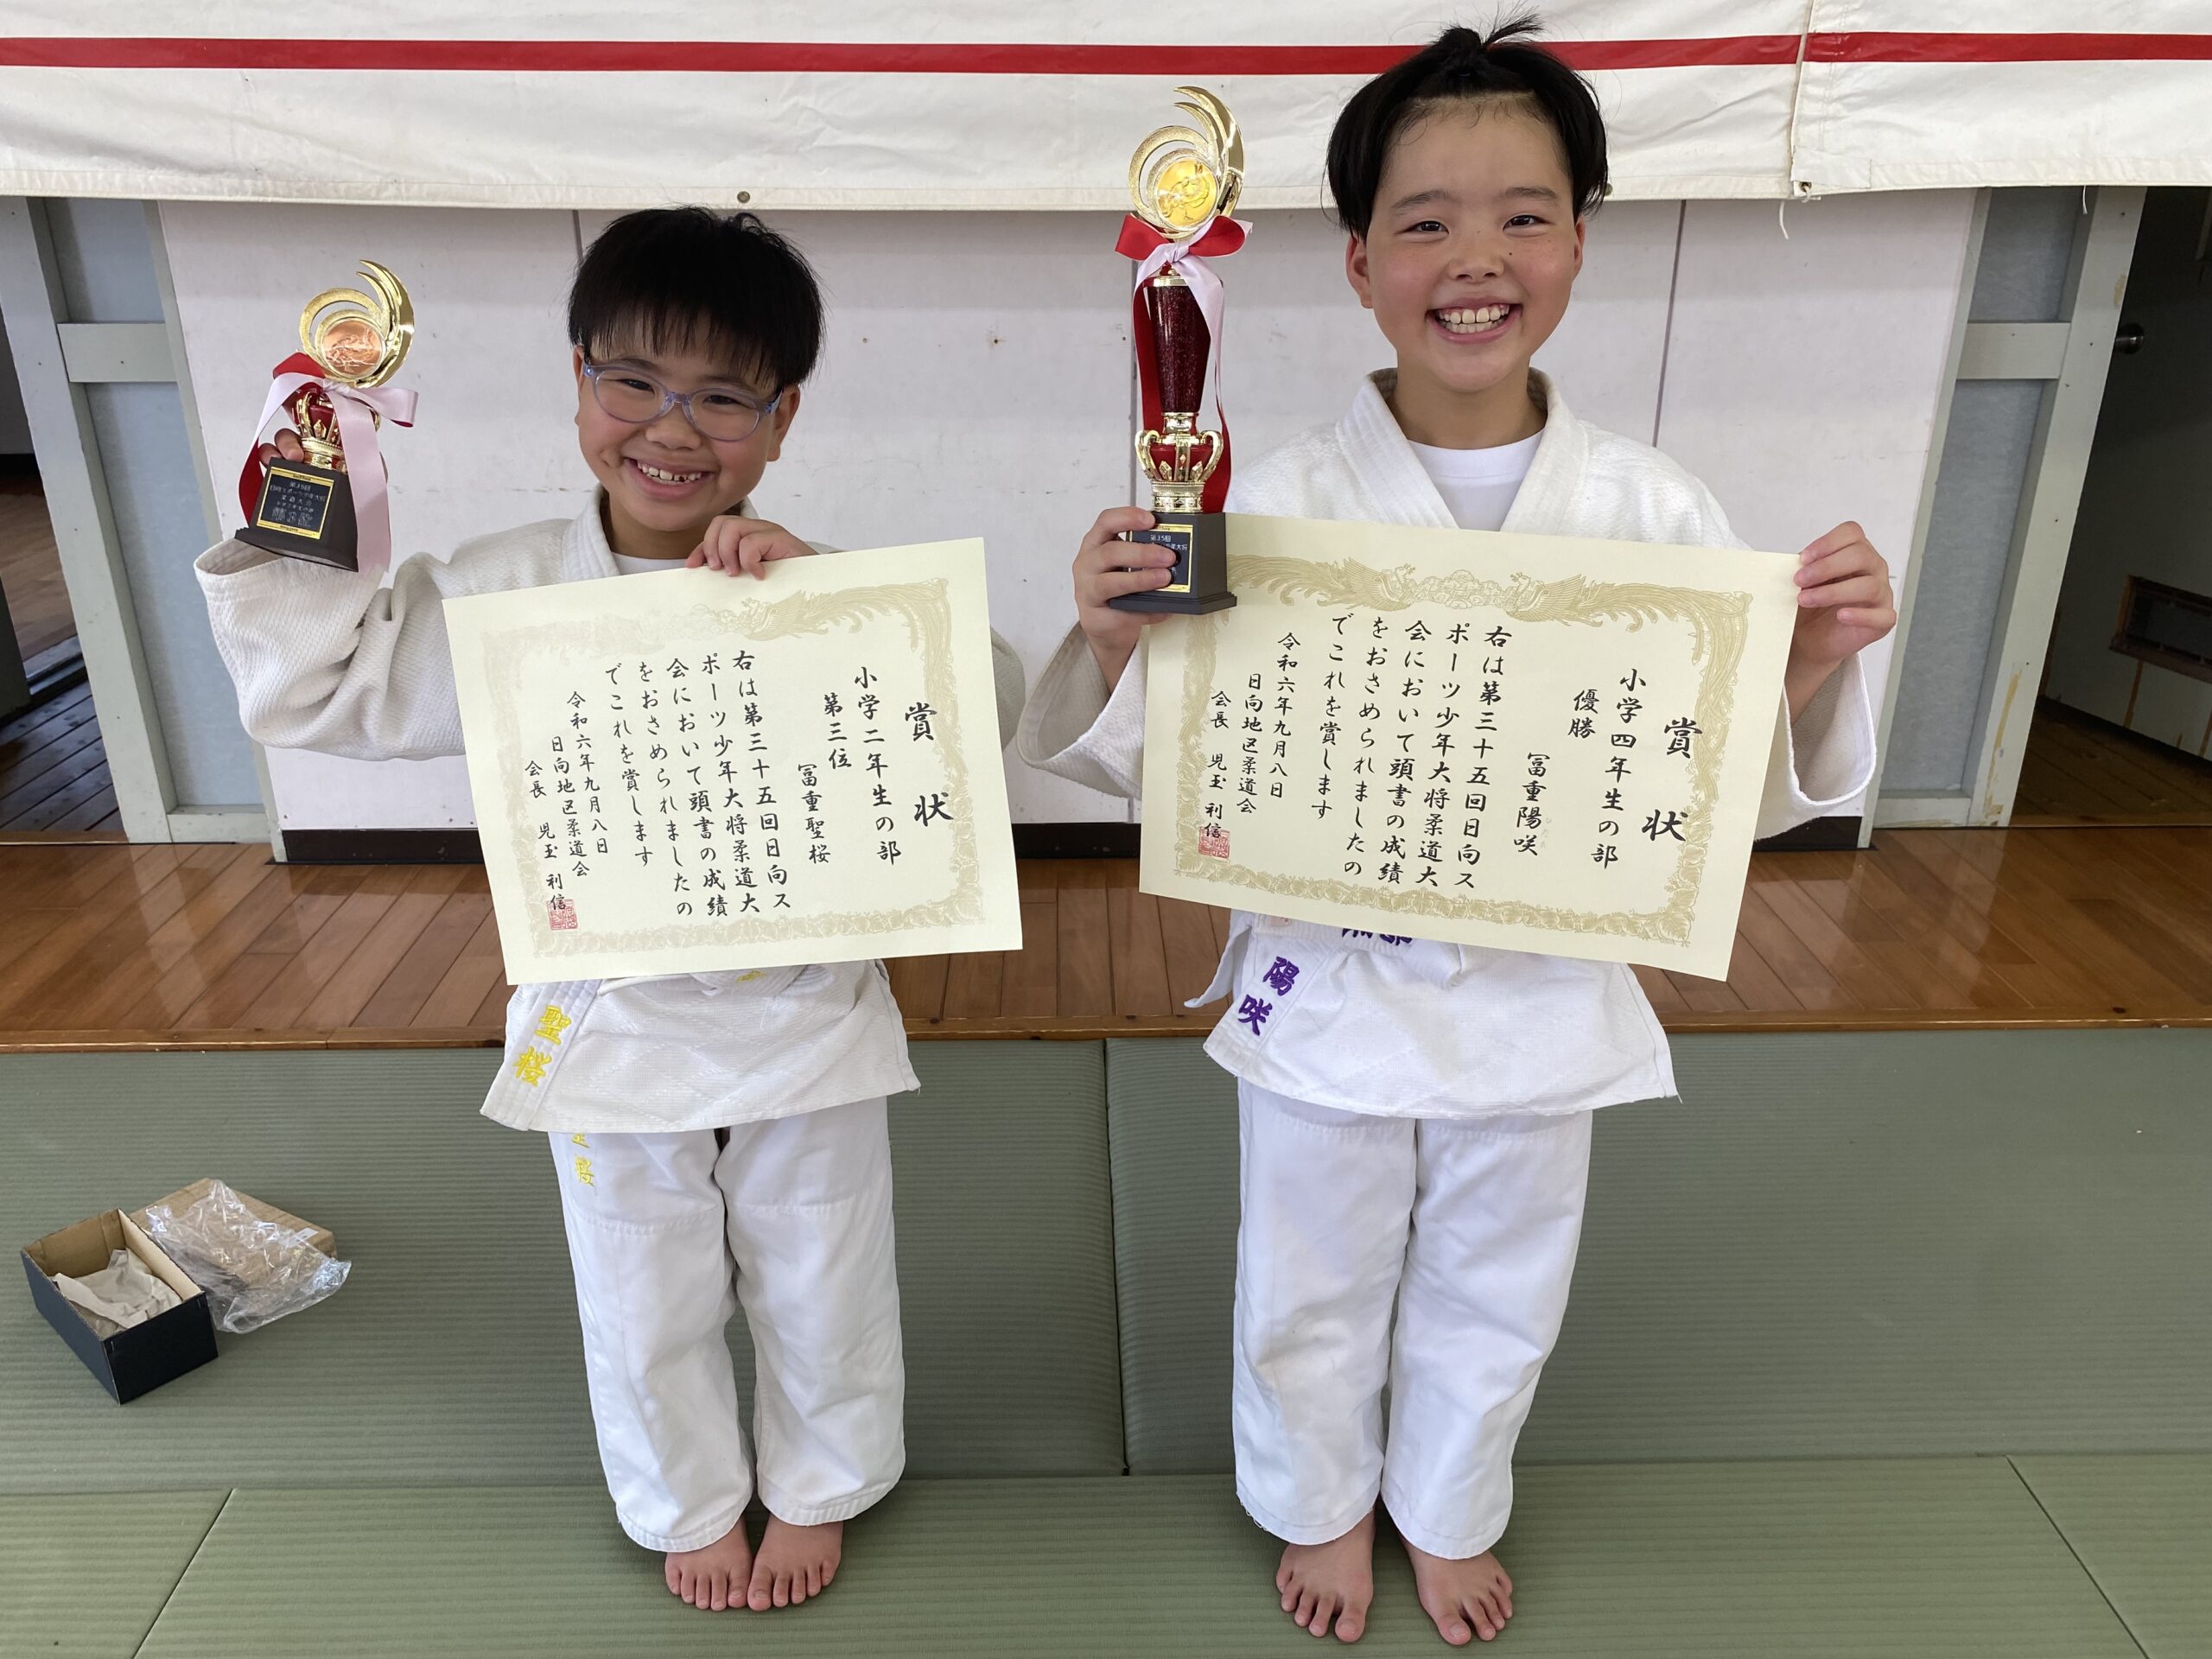 賞状
小学二年生の部
第三位
冨重聖桜
右は第三十五回日向ス
ポーツ少年大将柔道大
会において頭書の成績
をおさめられましたの
でこれを賞します
令和六年九月八日
日向地区柔道会
会長 児玉利信
聖桜
第35回
賞状
小学四年生の部
優勝
冨重陽咲
右は第三十五回日向ス
ポーツ少年大将柔道大
会において頭書の成績
をおさめられましたの
でこれを賞します
令和六年九月八日
日向地区柔道会
会長 児玉利信
陽咲
第35回